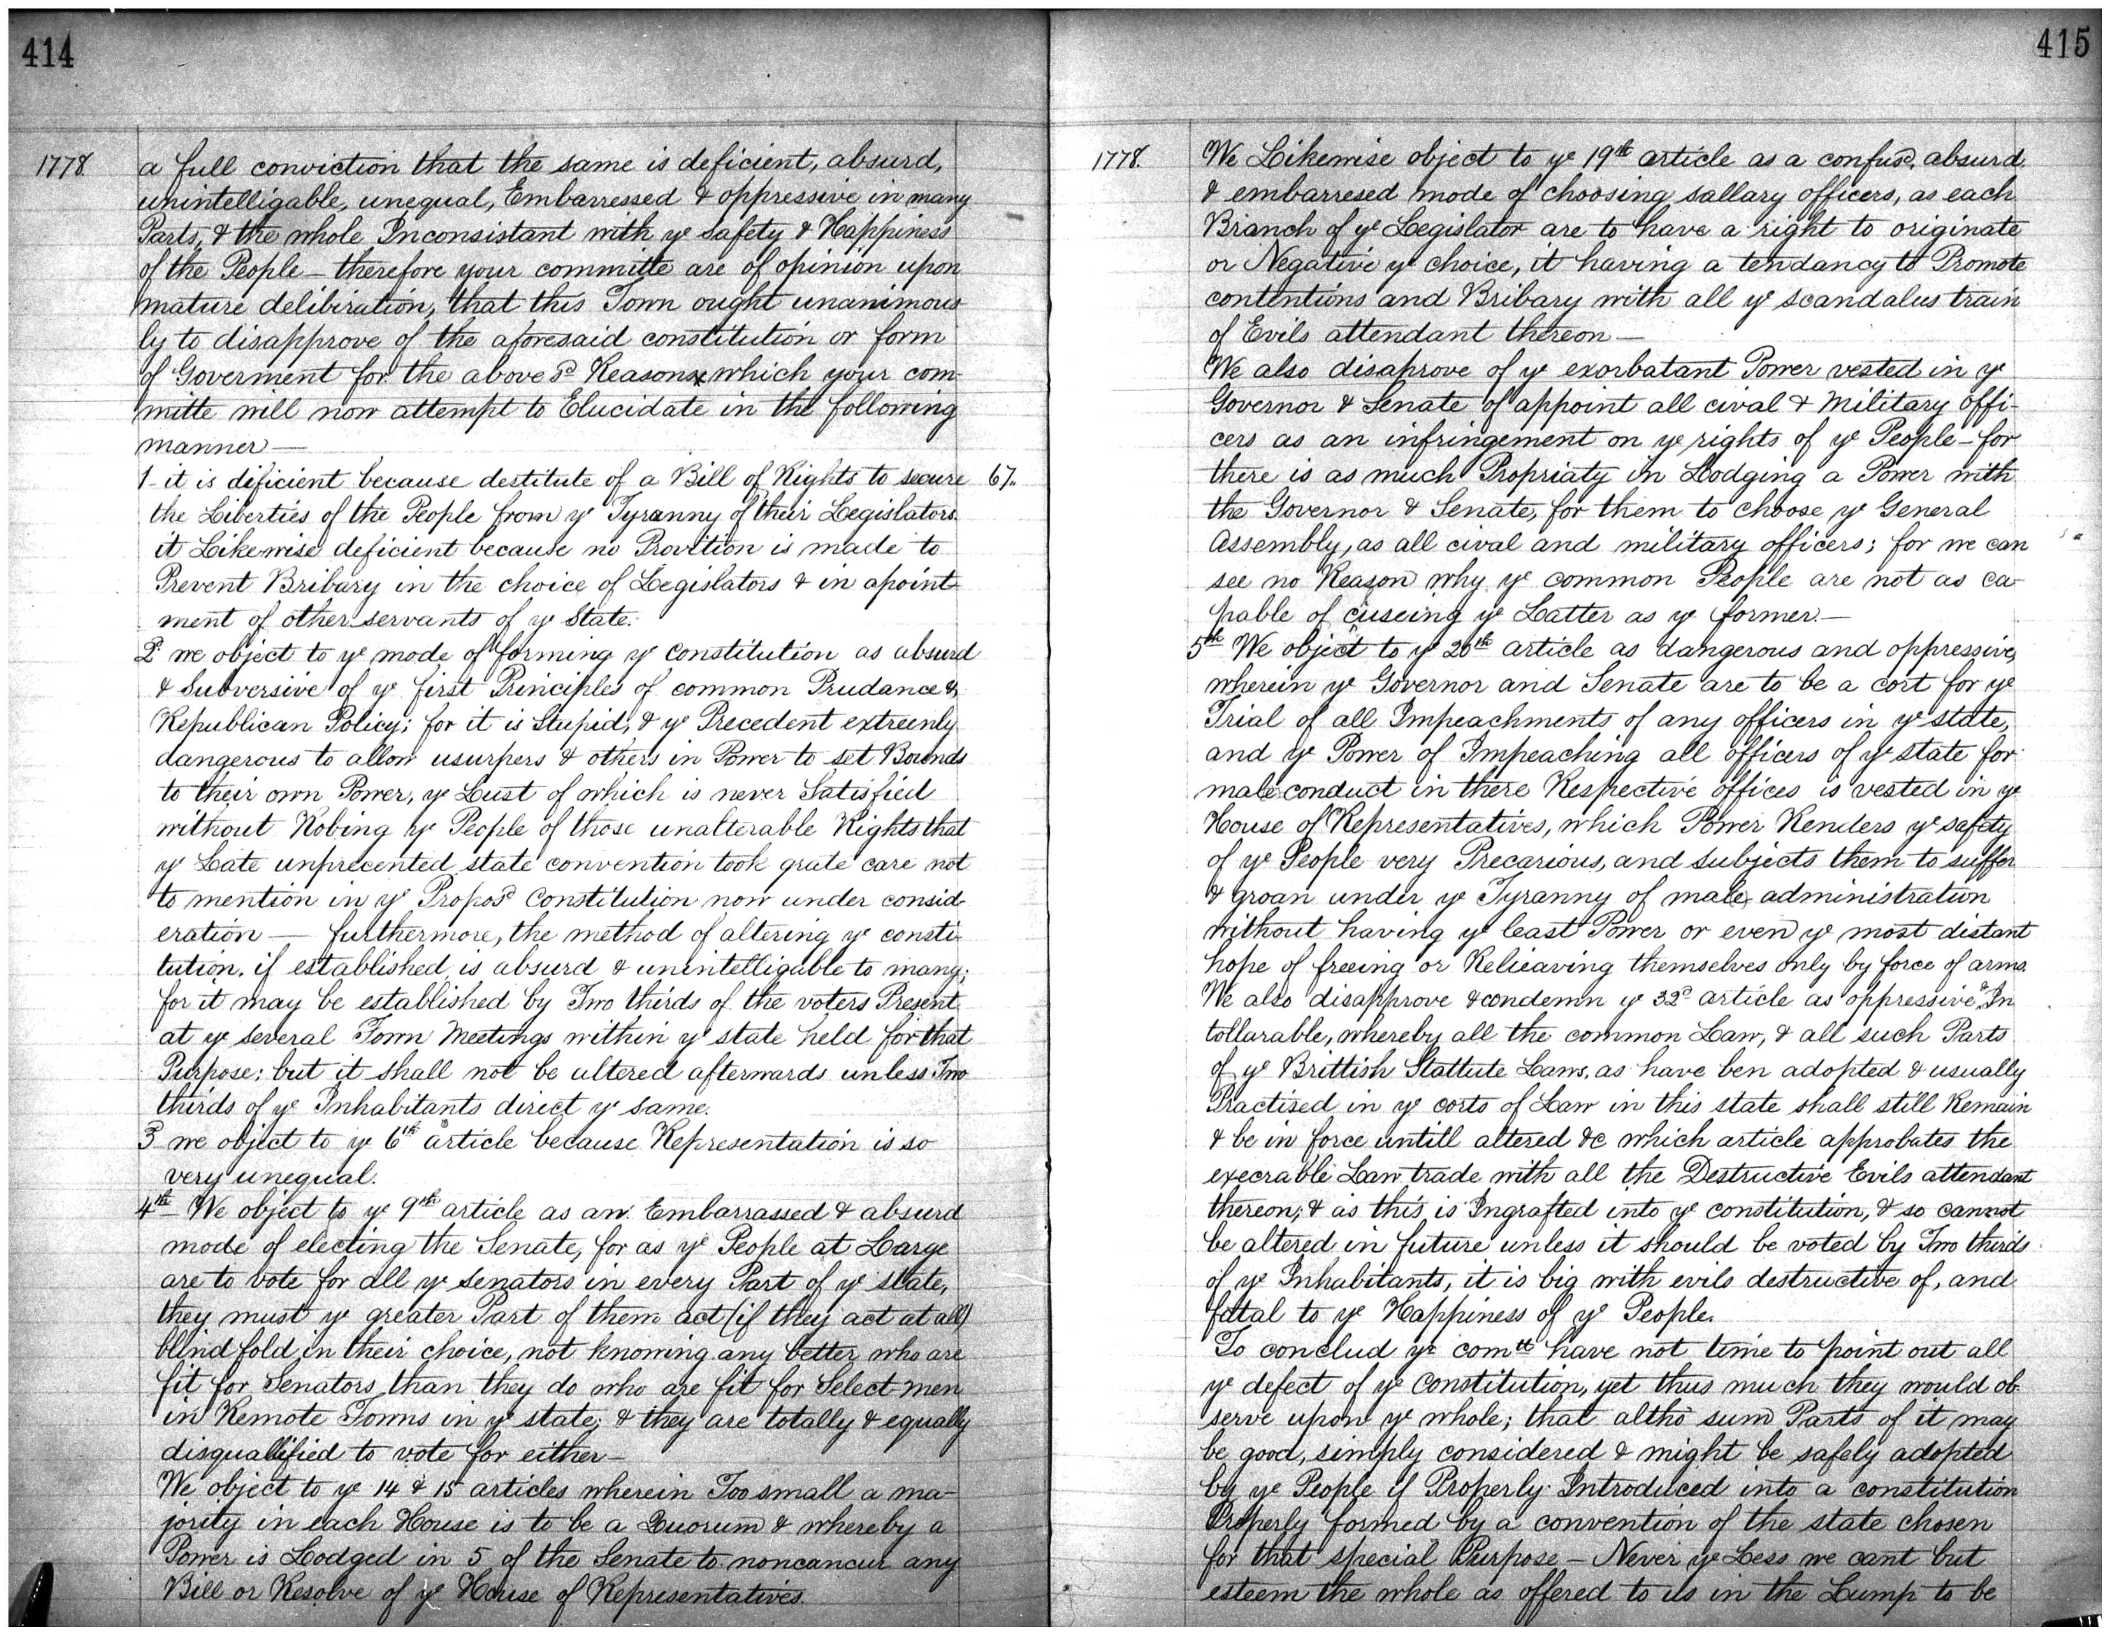 414
1778.
a full conviction that the same is deficient, absurd,
unintelligable, unequal, Embarressed & oppressive in many
Parts, & the whole Inconsistant with ye Safety & Happiness
of the People — therefore your committe are of opinion upon
mature delibiration, that this Town ought unanimous
ly to disapprove of the aforesaid constitution or form
of Goverment for the above sd Reasons which your com
mitte will now attempt to Elucidate in the following
manner —
1 it is dificient because destitute of a Bill of Rights to secure 67.
the Liberties of the People from ye Tyranny of their Legislators.
it Likewise deficient because no Provition is made to
Prevent Bribary in the choice of Legislators & in apoint
ment of other servants of ye State.
2 we object to ye mode of forming ye constitution as absurd
& Subversive of ye first Principles of common Prudance &
Republican Policy; for it is Stupid, & ye Precedent extreenly
dangerous to allow usurpers & others in Power to set Bounds
to their own Power, ye Lust of which is never Satisfied
without Robing ye People of those unalterable Rights that
ye Late unprecented state convention took grate care not
to mention in ye Proposd constitution now under consid
eration — furthermore, the method of altering ye consti-
tution, if established, is absurd & unintelligable to many;
for it may be established by Two thirds of the voters Present
at ye several Town Meetings within ye state held for that
Purpose; but it shall not be altered afterwards unless Two
thirds of ye Inhabitants direct ye same.
3 we object to ye 6th article because Representation is so
very unequal.
4th We object to ye 9th article as an Embarrassed & absurd
mode of electing the Senate, for as ye People at Large
are to vote for all ye senators in every Part of ye state,
they must ye greater Part of them act (if they act at all)
blind fold in their choice, not knowing any better who are
fit for Senators than they do who are fit for Select men
in Remote Towns in ye state; & they are totally & equally
disquallified to vote for either —
We object to ye 14 & 15 articles wherein Too small a ma-
jority in each House is to be a Quorum & whereby a
Power is Lodged in 5 of the Senate to noncancur any
Bill or Resolve of ye House of Representatives.
415
1778.
We Likewise object to ye 19th article as a confusd, absurd
& embarresed mode of choosing sallary officers, as each
Branch of ye Legislator are to have a right to originate
or Negative ye choice, it having a tendancy to Promote
contentions and Bribary with all ye scandalus train
of Evils attendant thereon —
We also disaprove of ye exorbatant Power vested in ye
Governor & Senate of appoint all cival & Military offi-
cers as an infringement on ye rights of ye People — for
there is as much Propriaty in Lodging a Power with
the Governor & Senate, for them to choose ye General
Assembly, as all cival and military officers; for we can
see no Reason why ye common People are not as ca-
pable of cuseing ye Latter as ye former. —
5th We object to ye 20th article as dangerous and oppressive,
wherein ye Governor and Senate are to be a cort for ye
Trial of all Impeachments of any officers in ye state,
and ye Power of Impeaching all officers of ye state for
male conduct in there Respective offices is vested in ye
House of Representatives, which Power Renders ye safety
of ye People very Precarious, and subjects them to suffer
& groan under ye Tyranny of male administration
without having ye least Power or even ye most distant
hope of freeing or Relieaving themselves only by force of arms.
We also disapprove & condemn ye 32d article as oppressive & In
tollarable, whereby all the common Law, & all such Parts
of ye Brittish Stattute Laws, as have ben adopted & usually
Practised in ye corts of Law in this state shall still Remain
& be in force untill altered &c which article approbates the
execrable Law trade with all the Destructive Evils attendant
thereon; & as this is Ingrafted into ye constitution, & so cannot
be altered in future unless it should be voted by Two thirds
of ye Inhabitants, it is big with evils destructive of, and
fatal to ye Happiness of ye People.
To conclud ye comtt have not time to point out all
ye defect of ye constitution, yet thus much they would ob
serve upon ye whole; that altho sum Parts of it may
be good, simply considered & might be safely adopted
by ye People if Properly Introduced into a constitution
Properly formed by a convention of the state chosen
for that special Purpose — Never ye Less we cant but
esteem the whole as offered to us in the Lump to be